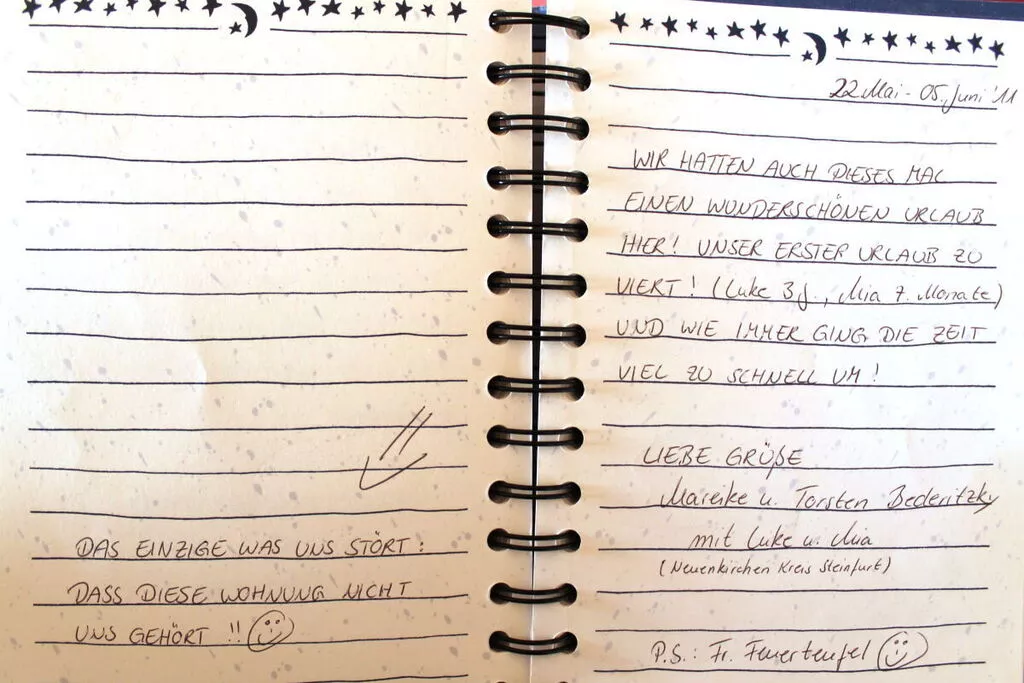 DAS EINZIGE WAS UNS STÖRT:
DASS DIESE WOHNUNG NICHT
UNS GEHÖRT !!
22 Mai - 05. Juni '11
WIR HATTEN AUCH DIESES MAL
EINEN WUNDERSCHÖNEN URLAUB
HIER! UNSER ERSTER URLAUB ZU
VIERT! (Luke 3 J., Mia 7. Monate)
UND WIE IMMER GING DIE ZEIT
VIEL ZU SCHNELL UM!
LIEBE GRÜßE
Mareike u. Torsten Bederitzky
mit Luke u. Mia
(Neuenkirchen Kreis Steinfurt)
P.S.: Fr. Feuerteufel